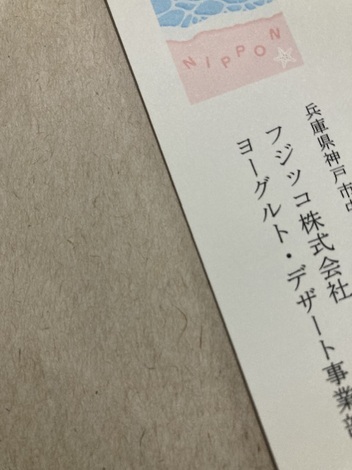 NIPPON
兵庫県神戸市中
フジッコ株式会社
ヨーグルト・デザート事業部